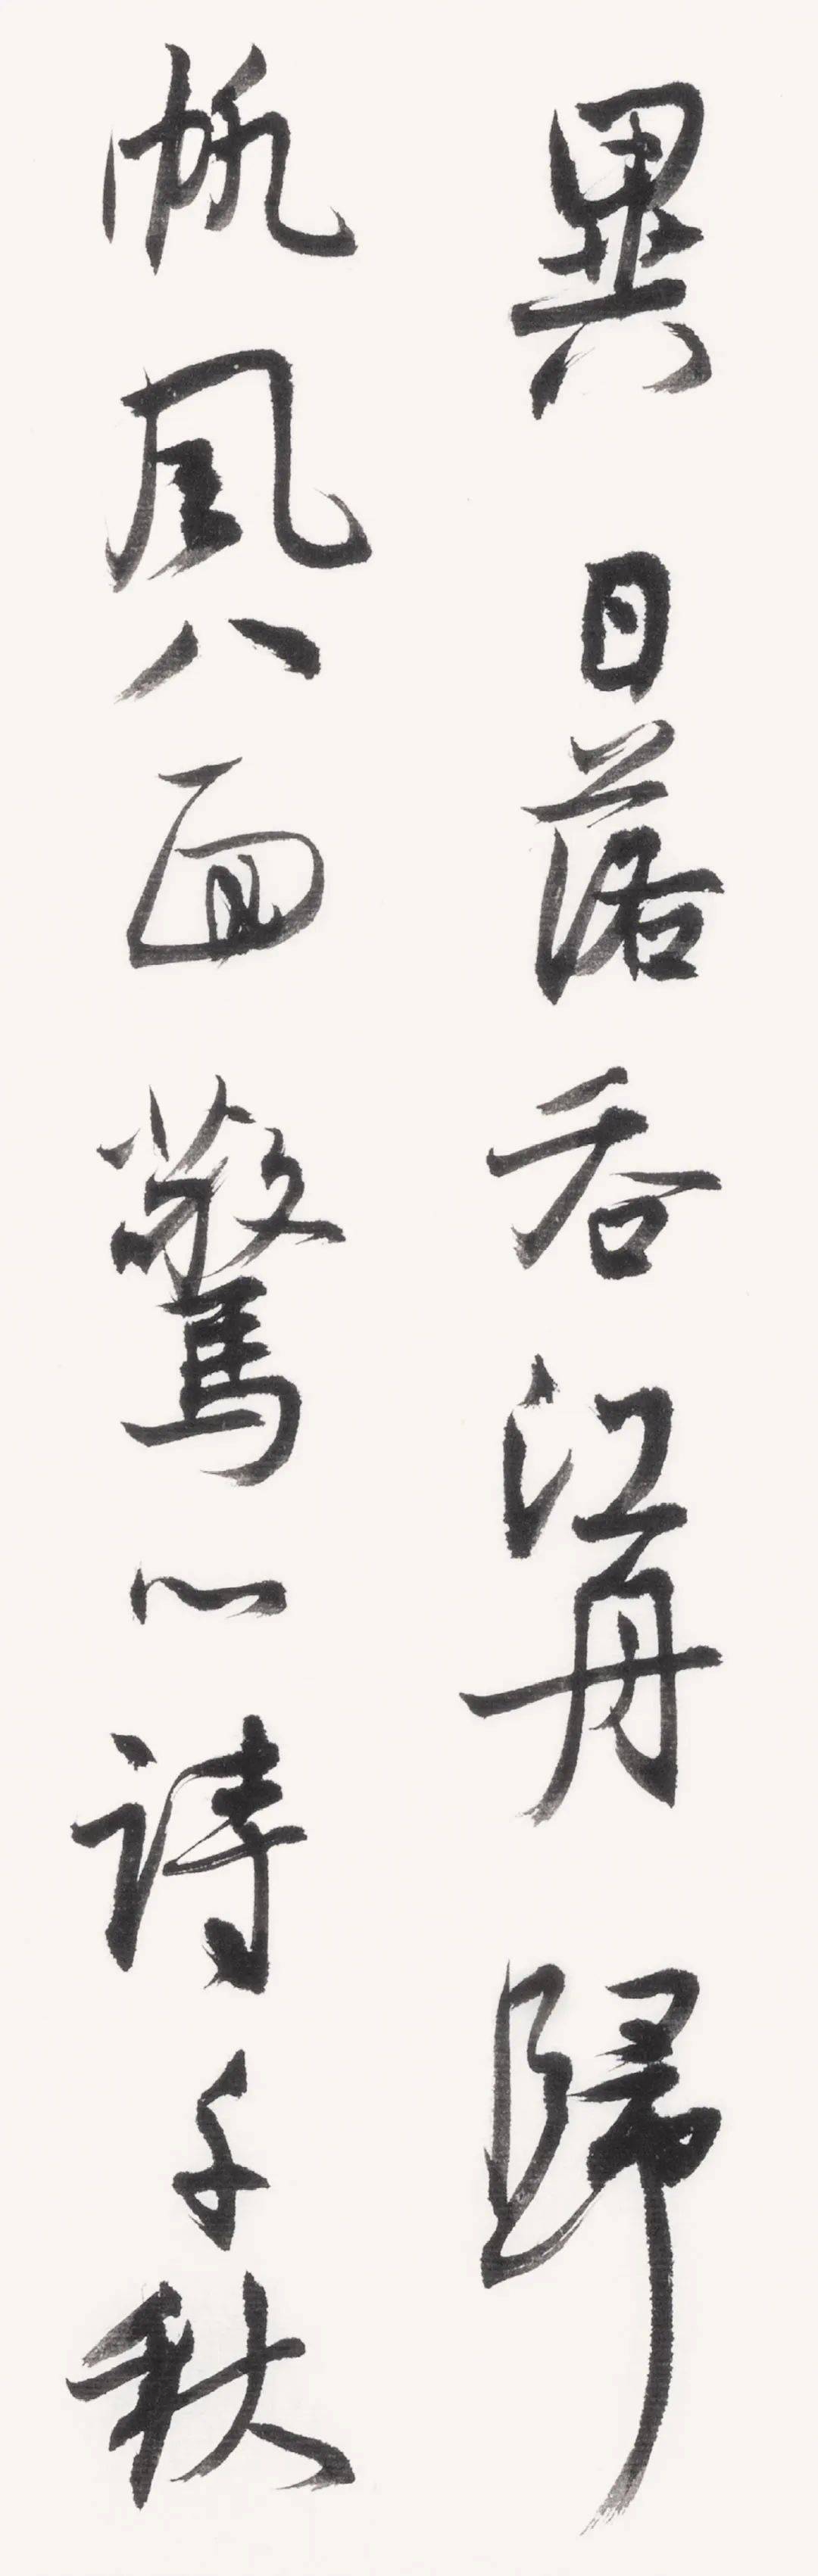 異日落吞江舟歸
帆風八面驚心詩千秋